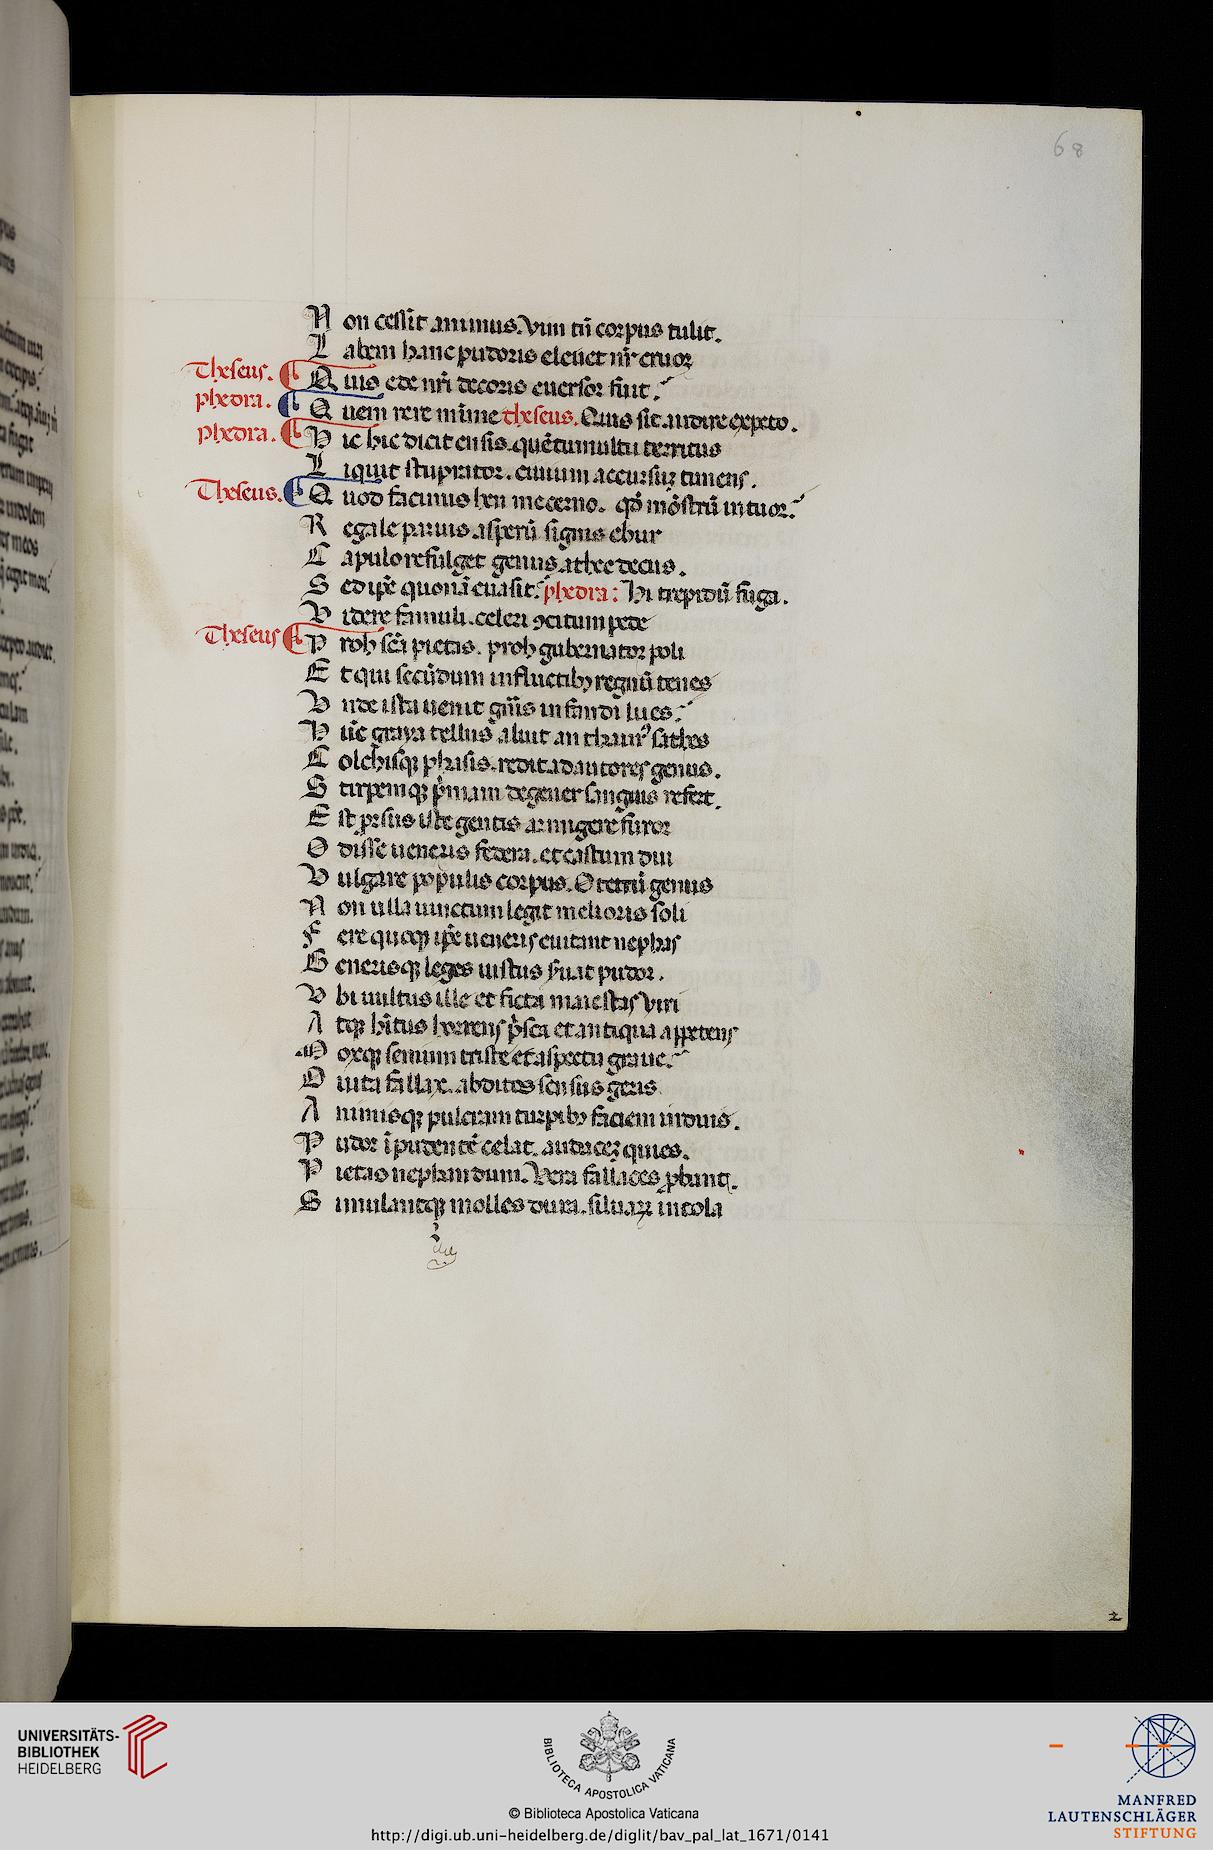 68
Non cessit animus. Vim tñ corpus tulit.
Labem hanc pudoris eluet nr̃ cruor
Theseus. Quis ede nr̃i decoris euersor fuit.
phedra. Quem rere mĩme theseus. Quis sit audire expeto.
phedra. Hic hic dicit ensis. quẽ tumultu territus
Liquit stuprator. ciuium accursuȝ timens.
Theseus. Quod facinus heu me cerno. qđ mõstrũ intuor.
Regale paruis asperũ signis ebur
Capulo refulget genus athee decus.
Sed ip̃e quonã euasit. phedra: Hi trepidũ fuga.
Videre famuli. celeri ꝯcitum pede
Theseus Proh sc̃a pietas. proh gubernator poli
Et qui secũdum in fluctibȝ regnũ tenes
Vnde ista uenit gñis infandi lues.
Hũc graya tellus aluit an thaurꝰ sithes
Colchisqȝ phasis. redit ad autores genus.
Stirpemqȝ pͥmam degener sanguis refert.
Est prsus iste gentis armigere furor
Odisse ueneris federa. et castum diu
Vulgare populis corpus. O tetrũ genus
Non ulla uinctum legit melioris soli
Fere quoqȝ ip̃e ueneris euitant nephas
Generisqȝ leges iustus suat pudor.
Vbi uultus ille et ficta maiestas viri
Atqȝ hĩtus horrens pͥsca et antiqua appetens
Morqȝ senium triste et aspectu graue.
O uita fallax. abditos sensus geris
Animisqȝ pulcram turpibȝ faciem induis.
Pudor ĩpudentẽ celat. audaceȝ quies.
Pietas nephandum. Vera fallaces ꝓbant.
Simulantqȝ molles dura. siluaꝝ incola
2
UNIVERSITÄTS-
BIBLIOTHEK
HEIDELBERG
BIBLIOTECA APOSTOLICA VATICANA
© Biblioteca Apostolica Vaticana
http://digi.ub.uni-heidelberg.de/diglit/bav_pal_lat_1671/0141
MANFRED
LAUTENSCHLÄGER
STIFTUNG